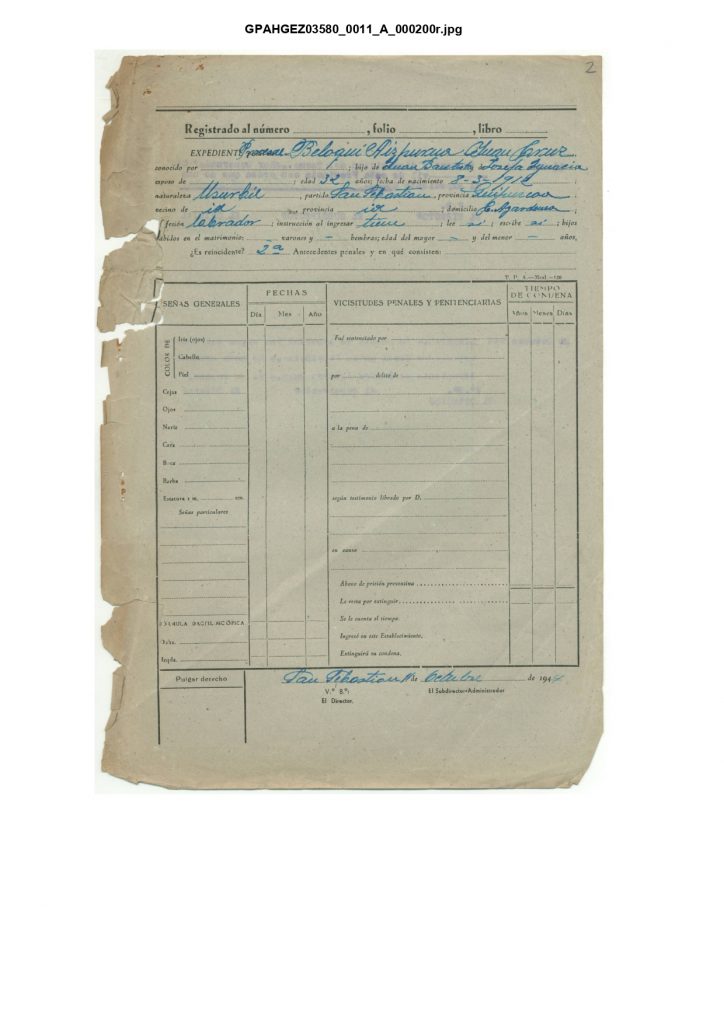 GPAHGEZ03580_0011_A_000200r.jpg
2
Registrado al número , folio , libro
EXPEDIENT Procesal Beloqui Aizpurua Juan Cruz
conocido por ; hijo de Juan Bautista y Josefa Ignacia
esposo de ; edad 32 años; fecha de nacimiento 8-3-1912 ;
naturaleza Usurbil , partido San Sebastian , provincia Guipuzcoa
vecino de id provincia id ; domicilio C.
fesión labrador ; instrucción al ingresar tiene ; lee si ; escribe si ; hijos
habidos en el matrimonio: - varones y - hembras; edad del mayor - y del menor - años,
¿Es reincidente? 2ª Antecedentes penales y en qué consisten:
SEÑAS GENERALES
FECHAS
VICISITUDES PENALES Y PENITENCIARIAS
TIEMPO
DE CONDENA
Día Mes Año
Años Meses Días
COLOR DE
Iris (ojos)
Cabello
Piel
Cejas
Ojos
Nariz
Cara
Boca
Barba
Estatura 1 m. cm.
Señas particulares
FÓRMULA DACTILOSCÓPICA
Dcha.
Izqda.
Fué sentenciado por
por delito de
a la pena de
según testimonio librado por D.
en causa
Abono de prisión preventiva
Le resta por extinguir
Se le cuenta el tiempo.
Ingresó en este Establecimiento.
Extinguirá su condena.
Pulgar derecho
San Sebastian 11 de Octubre de 1944
V.º B.º:
El Director,
El Subdirector-Administrador